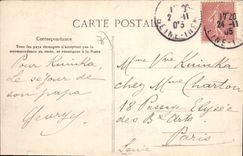 CARTE POSTALE
Correspondance
Tous les pays étrangers n'acceptent pas la
correspondance au recto, se renseigner à la Poste
Pour Kuinka
Le séjour de
son papa
Georges
2 -11
05
SEINE-INF
17 20
24 -11
05
Mme Vve Kuinka
chez Mme Charton
18 Passage Elysée
des Bx Arts
Paris